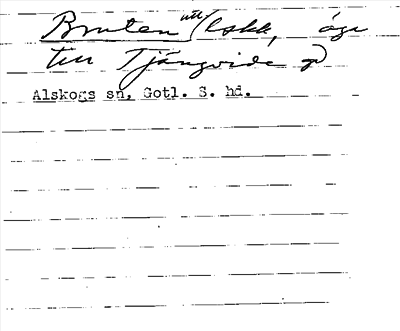 Bruten utt (Eske, äga
till Tjängvide g)
Alskogs sn, Gotl. S. hd.